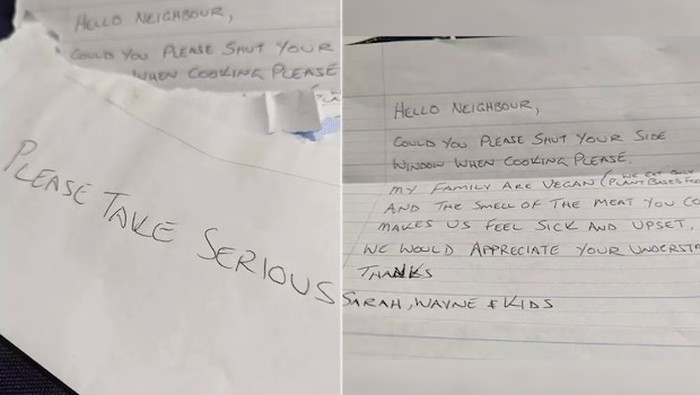 HELLO NEIGHBOUR,
COULD YOU PLEASE SHUT YOUR
WHEN COOKING PLEASE
PLEASE TAKE SERIOUS
HELLO NEIGHBOUR,
COULD YOU PLEASE SHUT YOUR SIDE
WINDOW WHEN COOKING PLEASE.
MY FAMILY ARE VEGAN (WE EAT ONLY PLANT BASED FOO
AND THE SMELL OF THE MEAT YOU CO
MAKES US FEEL SICK AND UPSET.
WE WOULD APPRECIATE YOUR UNDERSTA
THANKS
SARAH, WAYNE & KIDS